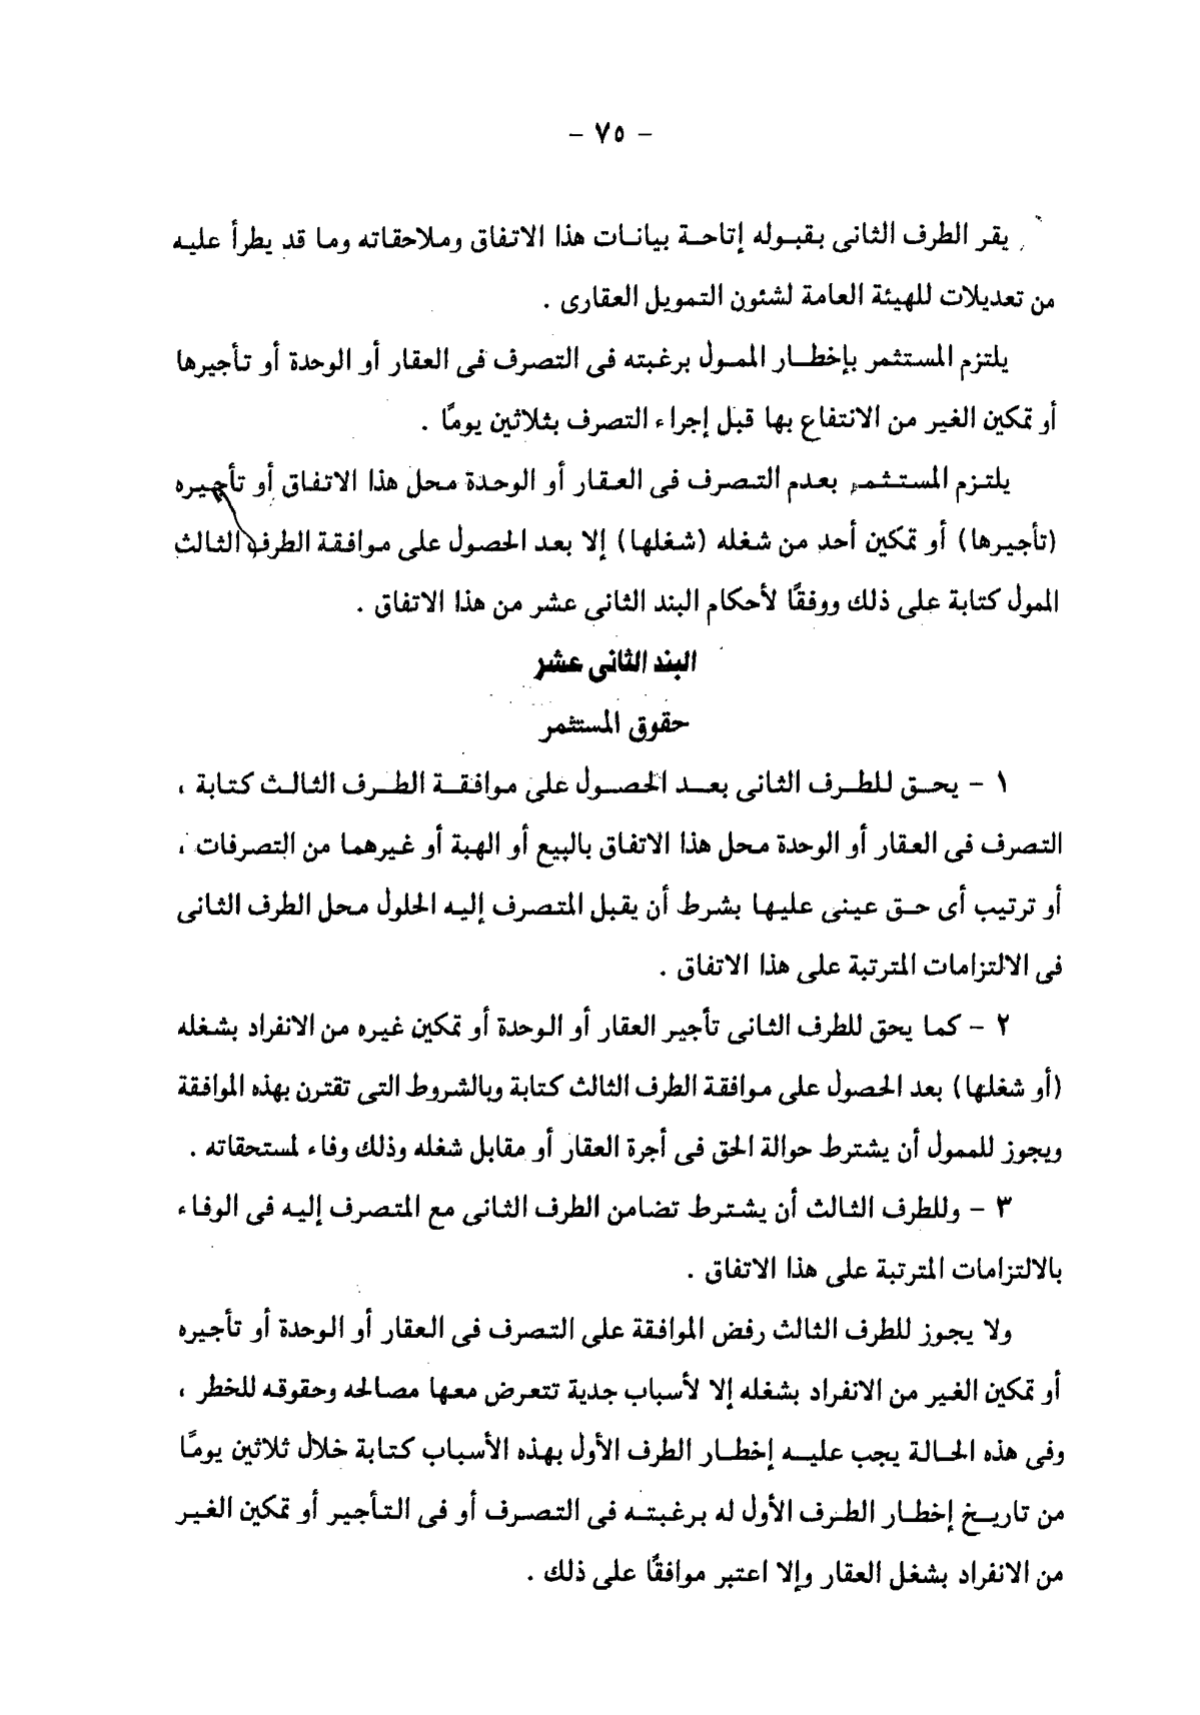 - ٧٥ -
يقر الطرف الثانى بقبوله إتاحة بيانات هذا الاتفاق وملاحقاته وما قد يطرأ عليه
من تعديلات للهيئة العامة لشئون التمويل العقارى .
يلتزم المستثمر بإخطار الممول برغبته فى التصرف فى العقار أو الوحدة أو تأجيرها
أو تمكين الغير من الانتفاع بها قبل إجراء التصرف بثلاثين يومًا .
يلتزم المستثمر بعدم التصرف فى العقار أو الوحدة محل هذا الاتفاق أو تأجيره
(تأجيرها) أو تمكين أحد من شغله (شغلها) إلا بعد الحصول على موافقة الطرف الثالث
الممول كتابة على ذلك ووفقًا لأحكام البند الثانى عشر من هذا الاتفاق .
البند الثانى عشر
حقوق المستثمر
١ - يحق للطرف الثانى بعد الحصول على موافقة الطرف الثالث كتابة ،
التصرف فى العقار أو الوحدة محل هذا الاتفاق بالبيع أو الهبة أو غيرهما من التصرفات ،
أو ترتيب أى حق عينى عليها بشرط أن يقبل المتصرف إليه الحلول محل الطرف الثانى
فى الالتزامات المترتبة على هذا الاتفاق .
٢ - كما يحق للطرف الثانى تأجير العقار أو الوحدة أو تمكين غيره من الانفراد بشغله
(أو شغلها) بعد الحصول على موافقة الطرف الثالث كتابة وبالشروط التى تقترن بهذه الموافقة
ويجوز للممول أن يشترط حوالة الحق فى أجرة العقار أو مقابل شغله وذلك وفاء لمستحقاته .
٣ - وللطرف الثالث أن يشترط تضامن الطرف الثانى مع المتصرف إليه فى الوفاء
بالالتزامات المترتبة على هذا الاتفاق .
ولا يجوز للطرف الثالث رفض الموافقة على التصرف فى العقار أو الوحدة أو تأجيره
أو تمكين الغير من الانفراد بشغله إلا لأسباب جدية تتعرض معها مصالحه وحقوقه للخطر ،
وفى هذه الحالة يجب عليه إخطار الطرف الأول بهذه الأسباب كتابة خلال ثلاثين يومًا
من تاريخ إخطار الطرف الأول له برغبته فى التصرف أو فى التأجير أو تمكين الغير
من الانفراد بشغل العقار وإلا اعتبر موافقًا على ذلك .